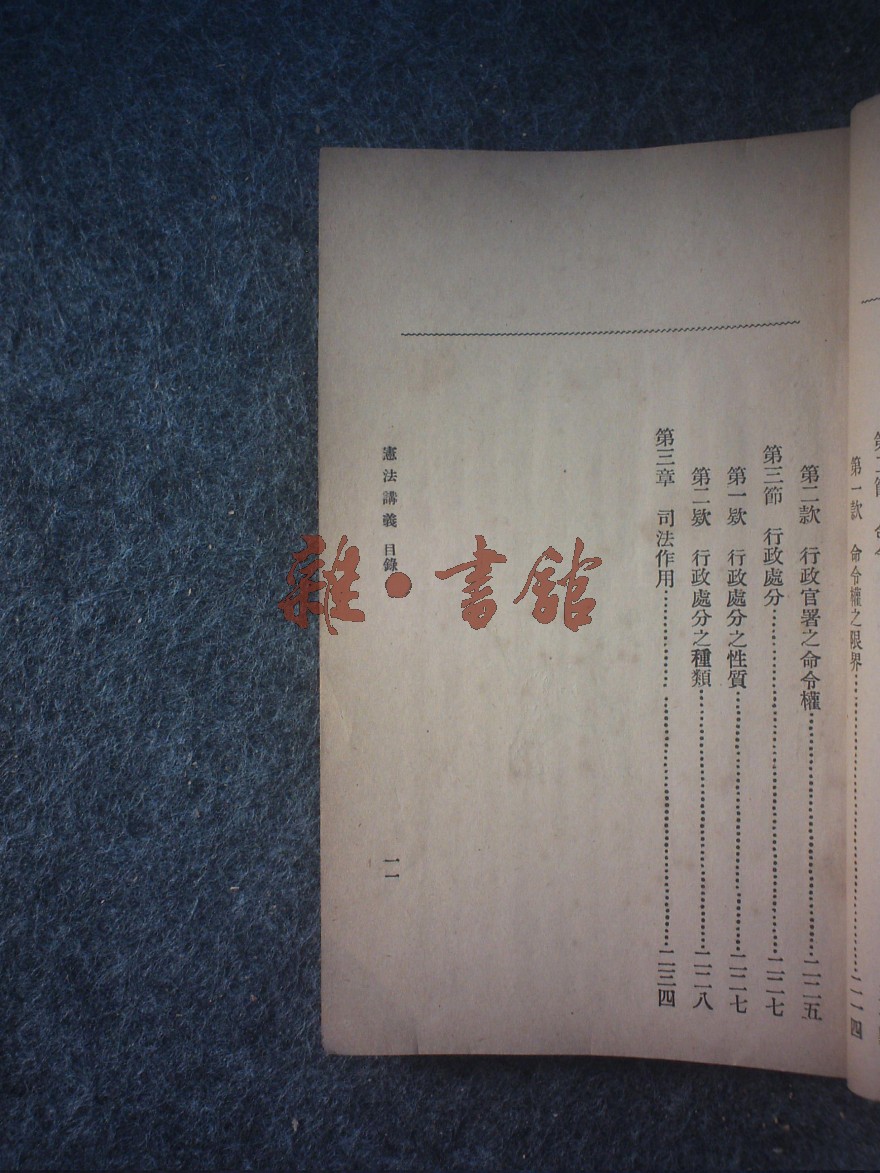 第一款 命令權之限界……二一四
第二款 行政官署之命令權……二二五
第三節 行政處分……二二七
第一欵 行政處分之性質……二二七
第二欵 行政處分之種類……二二八
第三章 司法作用……二三四
憲法講義 目錄 一一
雜·書館